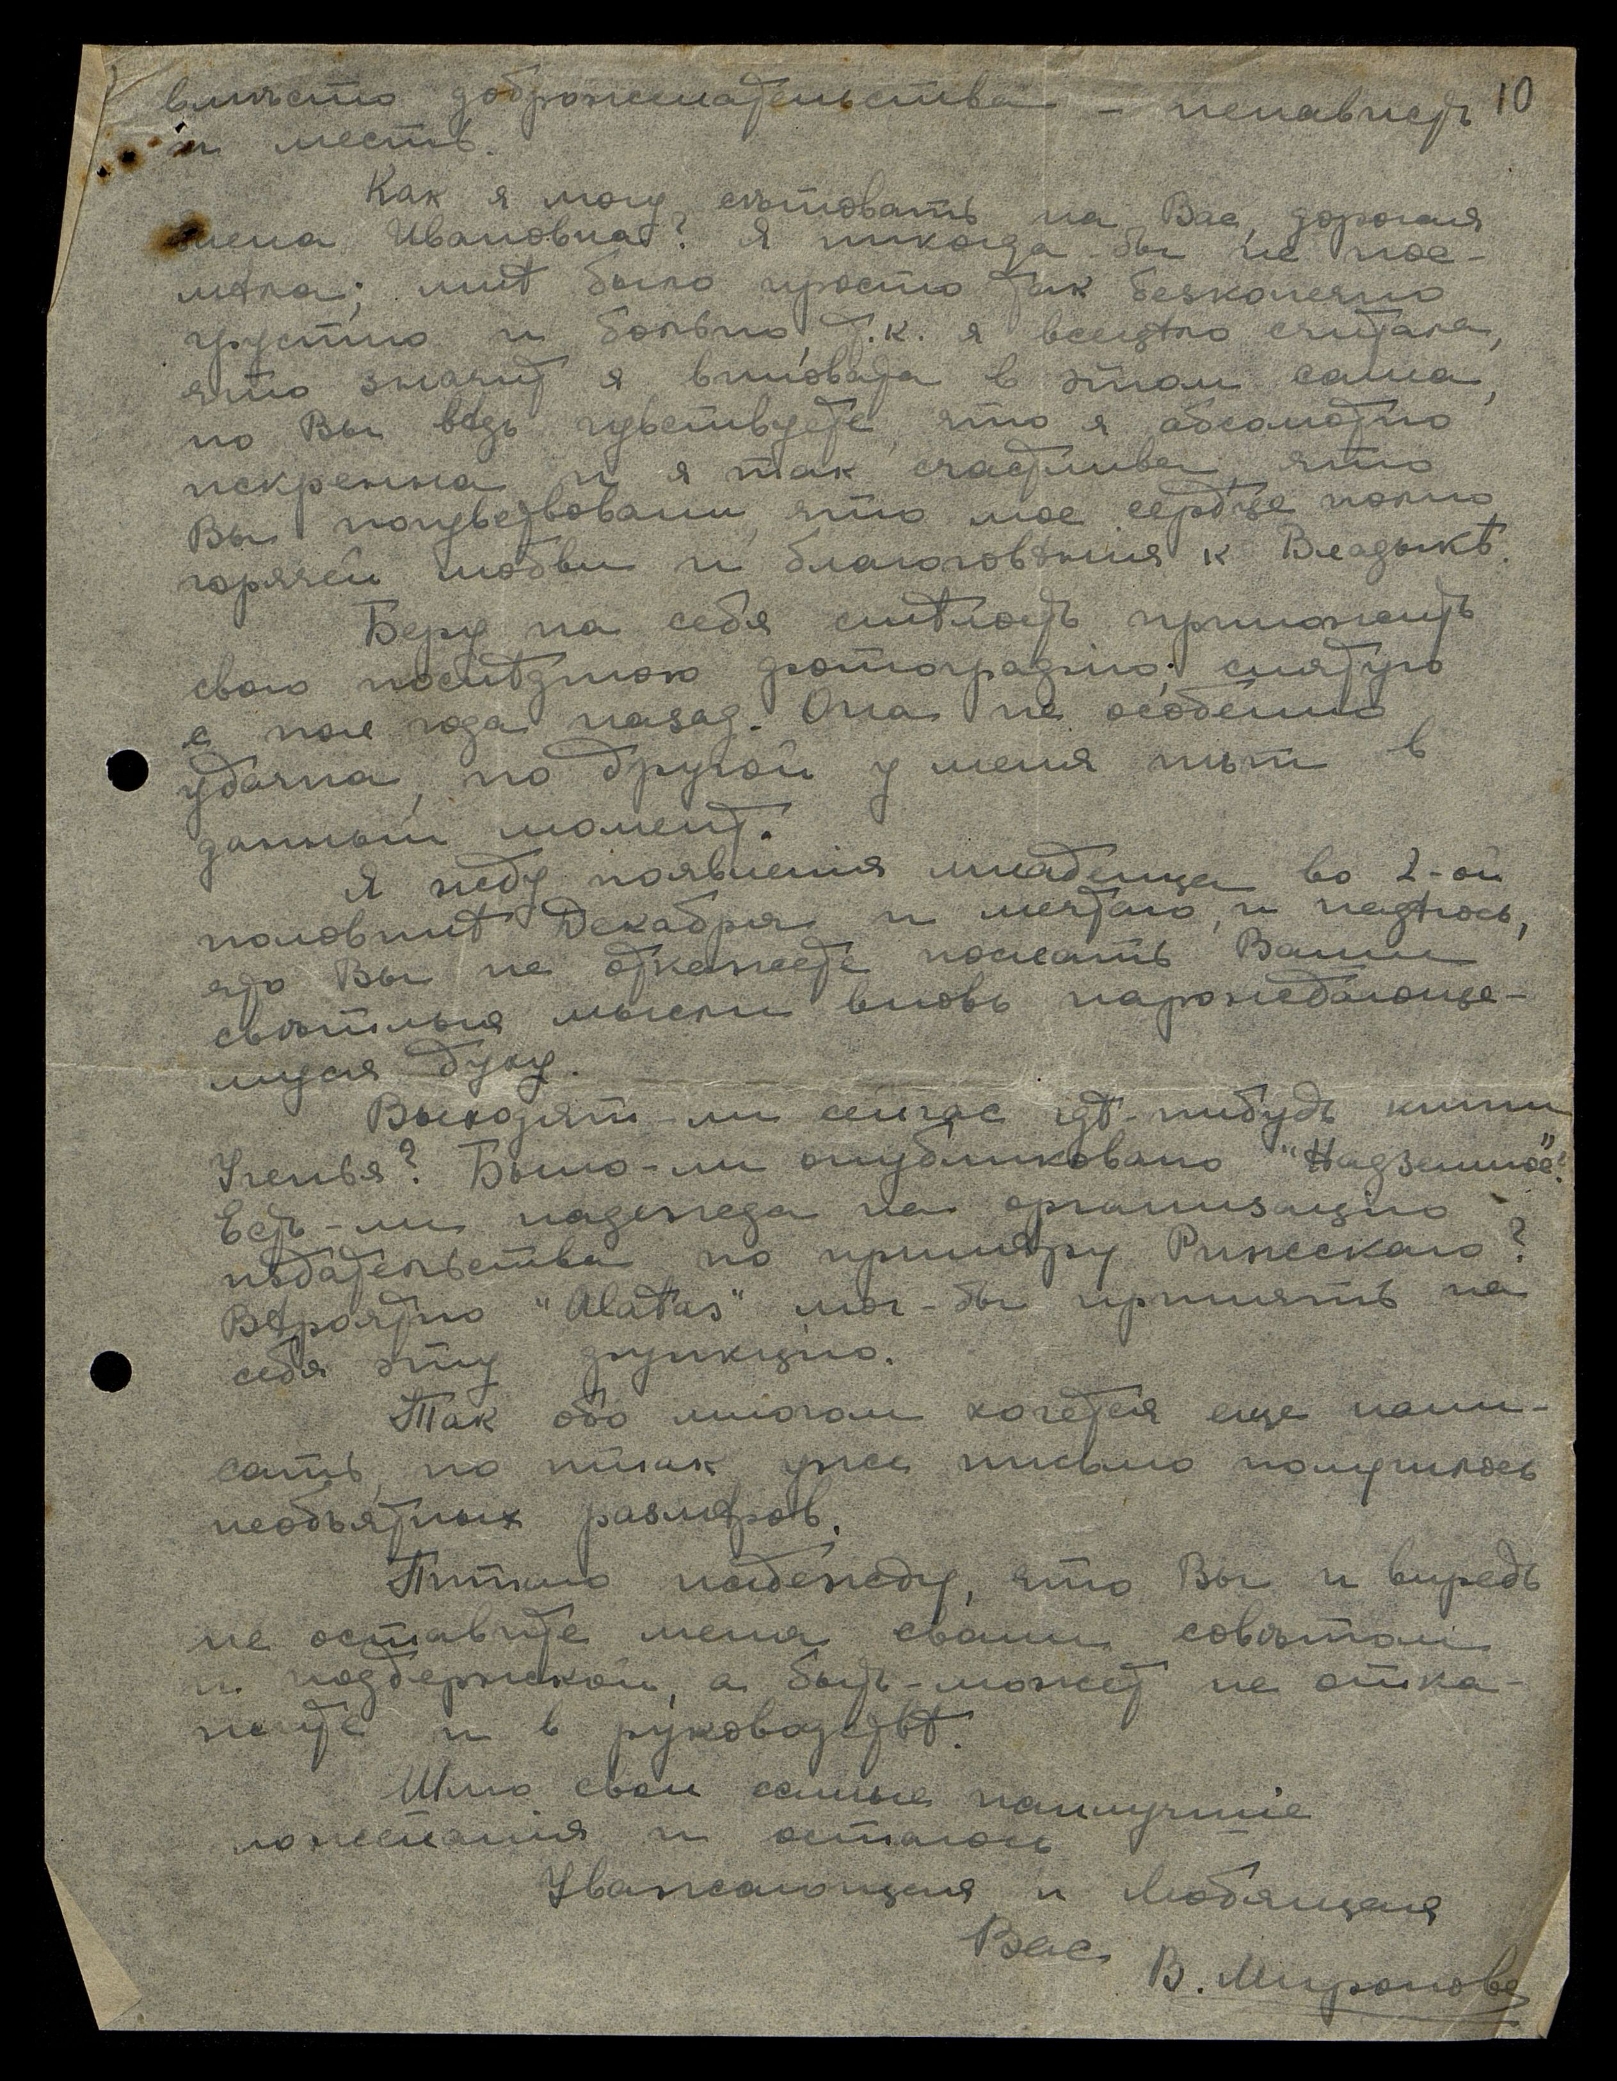 вмѣсто доброжелательства – ненависть 10
и месть.
Как я могу сѣтовать на Вас, дорогая
Елена Ивановна? Я никогда-бы не пос-
мѣла; мнѣ было просто так безконечно
грустно и больно, т.к. я всецѣло считала,
что значит я виновата в этом сама,
но Вы вѣдь чувствуете, что я абсолютно
искренна и я так счастлива, что
Вы почувствовали, что мое сердце полно
горячей любви и благоговѣния к Владыкѣ.
Беру на себя смѣлость приложить
свою послѣднюю фотографію, снятую
с пол года назад. Она не особенно
удачна, но другой у меня нѣт в
данный момент.
Я жду появленія младенца во 2-ой
половинѣ Декабря и мечтаю, и надѣюсь,
что Вы не откажете послать Ваши
свѣтлыя мысли вновь нарождающе-
муся духу.
Выходят-ли сейчас гдѣ-нибудь книги
Ученья? Было-ли опубликовано "Надземное"?
Есть-ли надежда на организацію
издательства по примѣру Рижскаго?
Вѣроятно "Alatas" мог-бы принять на
себя эту функцію.
Так обо многом хочется еще напи-
сать, но и так уже письмо получилось
необъятных размѣров.
Питаю надежду, что Вы и впредь
не оставите меня своим совѣтом
и поддержкой, а быть-может не отка-
жете и в руководствѣ.
Шлю свои самые наилучшіе
пожеланія и остаюсь
Уважающая и Любящая
Вас
В. Миронова